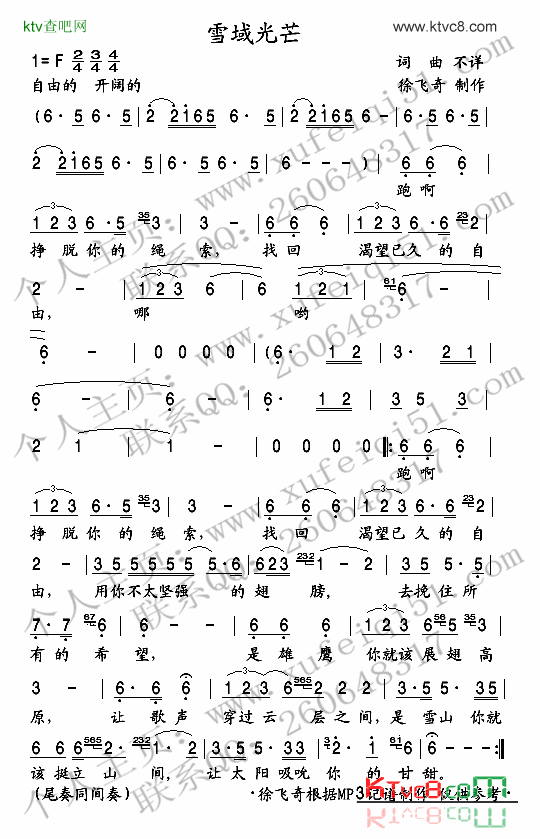 ktv查吧网 www.ktvc8.com
雪域光芒
1=F 2/4 3/4 4/4 词 曲 不详
自由的 开阔的 徐飞奇 制作
(6· 5 6· 5 | 2 2165 6· 5 | 2 2165 6· 5 |
2 2165 6· 5 | 6· 5 6· 5 | 6 - - - ) | 6 6 6 |
跑啊
1 2 3 6 · 5 35 3 | 3 - | 6 6 1 2 3 6 · 6 23 2 |
挣 脱 你 的 绳 索, 找 回 渴望已久 的 自
2 - | 1 2 3 6 6 | 6 1 2 1 | 61 6 - |
由, 哪 哟
6 - | 0 0 0 0 | (6· 1 2 | 3· 2 1 |
6 - | 6 - | 6· 1 2 | 3 5 3 |
2 1 | 1 - | 0 0 0 0 |: 6 6 6 |
跑啊
1 2 3 6 · 5 35 3 | 3 - | 6 6 1 2 3 6 · 6 23 2 |
挣 脱 你 的 绳 索, 找 回 渴望已久 的 自
2 - | 3 5 5 5 5 5 5·6 | 6 2 3 232 1 - 2 | 3 5 5·6 |
由, 用你不太坚强 的 翅 膀, 去挽住所
7· 7 67 6 | 6 - | 6 6 1 2 3 3 56 5 35 3 |
有的 希 望, 是 雄 鹰 你就该 展 翅 高
3 - | 6· 6 6 | 1 2 2 3 1 2 5 3 5 5 5 6 |
原, 让 歌 声 穿过云 层之间,是 雪山 你就
6 6 6 565 2 565 2 | 2 1· | 3 5 3 2 2· 1 61 6 | 6 - :|
该 挺 立 山 间, 让 太阳吸吮 你 的 甘甜。
(尾奏同间奏) ·徐飞奇根据MP3记谱制作 仅供参考·
ktvc8.com
个人主页: www.xufeiqi51.com
联系QQ: 260648317
个人主页: www.xufeiqi51.com
联系QQ: 260648317
个人主页: www.xufeiqi51.com
联系QQ: 260648317